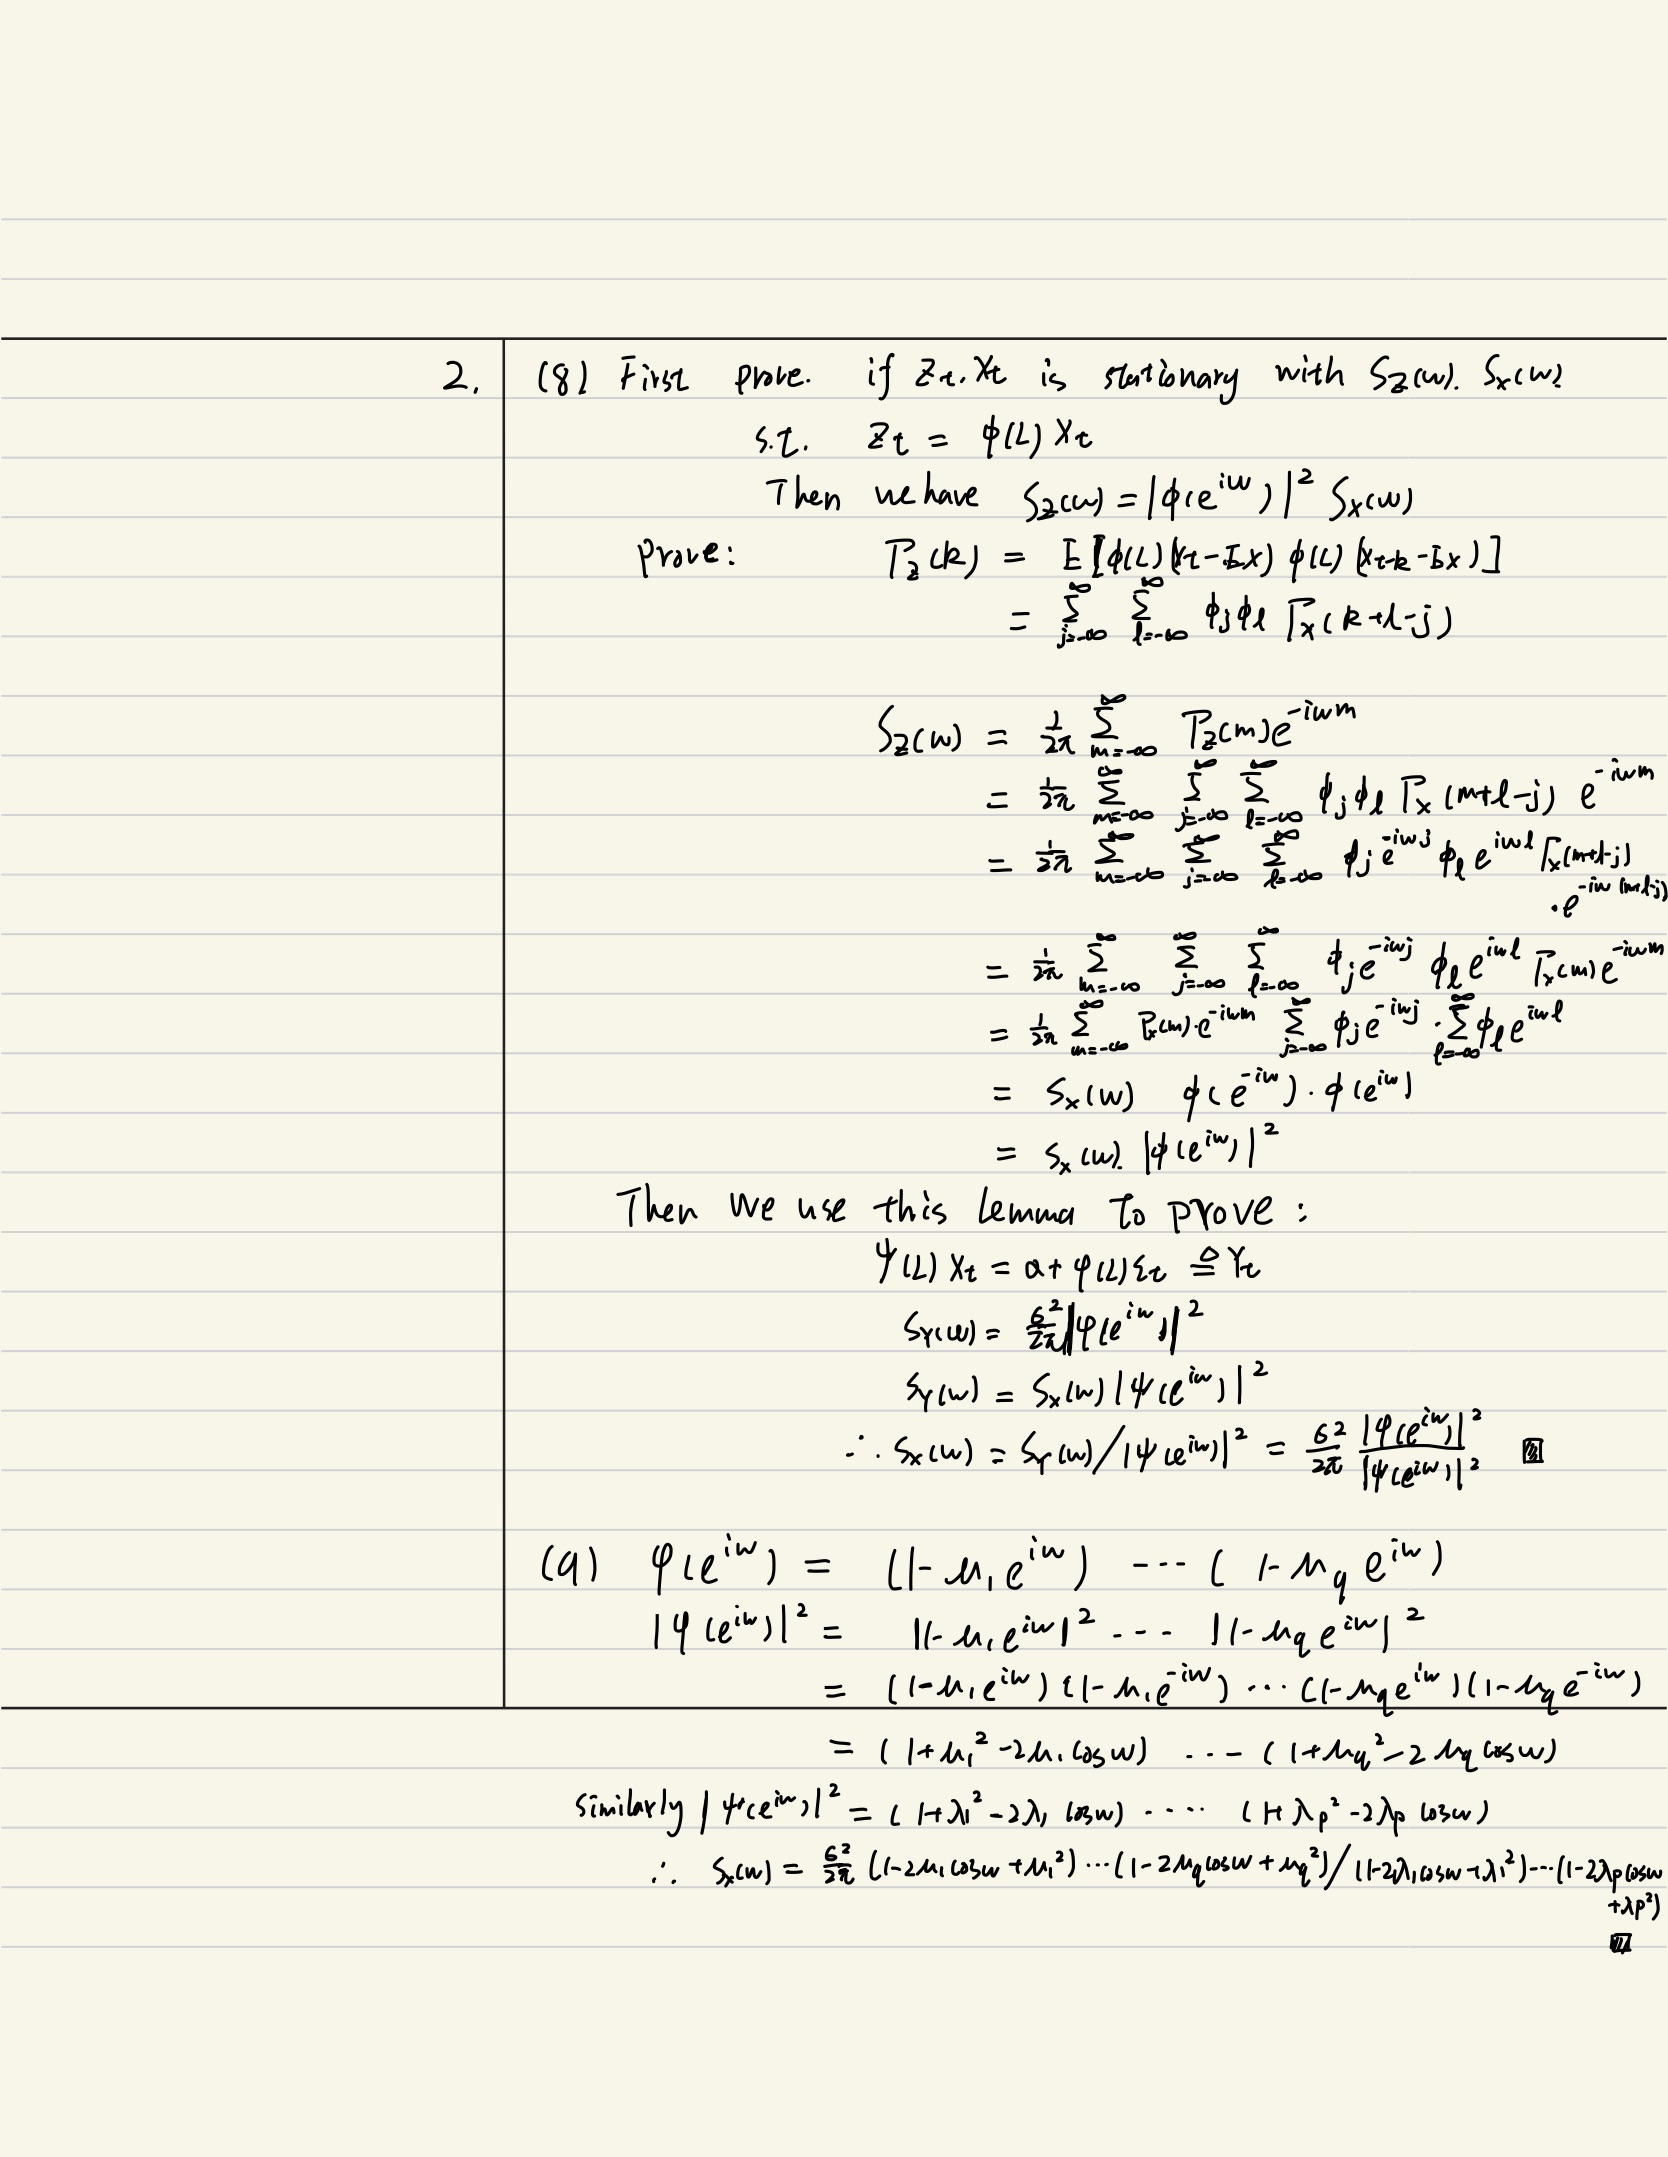 2. (8) First prove. if Zt. Xt is stationary with Sz(w). Sx(w)
s.t. Zt = ϕ(L) Xt
Then we have Sz(w) = |ϕ(e^{iw})|² Sx(w)
Prove: Γz(k) = E[ϕ(L)(Xt-EX) ϕ(L)(Xt-k-EX)]
= Σ_{j=-∞}^{∞} Σ_{l=-∞}^{∞} ϕj ϕl Γx(k+l-j)
Sz(w) = 1/2π Σ_{m=-∞}^{∞} Γz(m)e^{-iwm}
= 1/2π Σ_{m=-∞}^{∞} Σ_{j=-∞}^{∞} Σ_{l=-∞}^{∞} ϕj ϕl Γx(m+l-j) e^{-iwm}
= 1/2π Σ_{m=-∞}^{∞} Σ_{j=-∞}^{∞} Σ_{l=-∞}^{∞} ϕj e^{-iwj} ϕl e^{iwl} Γx(m+l-j)
·e^{-iw(m+l-j)}
= 1/2π Σ_{m=-∞}^{∞} Σ_{j=-∞}^{∞} Σ_{l=-∞}^{∞} ϕj e^{-iwj} ϕl e^{iwl} Γx(m) e^{-iwm}
= 1/2π Σ_{m=-∞}^{∞} Γx(m)·e^{-iwm} Σ_{j=-∞}^{∞} ϕj e^{-iwj} · Σ_{l=-∞}^{∞} ϕl e^{iwl}
= Sx(w) ϕ(e^{-iw}) · ϕ(e^{iw})
= Sx(w). |ϕ(e^{iw})|²
Then we use this Lemma to prove:
ψ(L) Xt = a + φ(L)εt ≜ Yt
SY(w) = σ²/2π |φ(e^{iw})|²
SY(w) = Sx(w) |ψ(e^{iw})|²
∴ Sx(w) = SY(w)/|ψ(e^{iw})|² = σ²/2π |φ(e^{iw})|²/|ψ(e^{iw})|²
(9) φ(e^{iw}) = (1-μ1 e^{iw}) --- (1-μq e^{iw})
|φ(e^{iw})|² = |1-μ1 e^{iw}|² --- |1-μq e^{iw}|²
= (1-μ1 e^{iw})(1-μ1 e^{-iw}) ··· (1-μq e^{iw})(1-μq e^{-iw})
= (1+μ1²-2μ1 cosw) ---- (1+μq²-2μq cosw)
similarly |ψ(e^{iw})|² = (1+λ1²-2λ1 cosw) ···· (1+λp²-2λp cosw)
∴ Sx(w) = σ²/2π (1-2μ1 cosw+μ1²)···(1-2μq cosw+μq²)/(1-2λ1 cosw+λ1²)---(1-2λp cosw
+λp²)